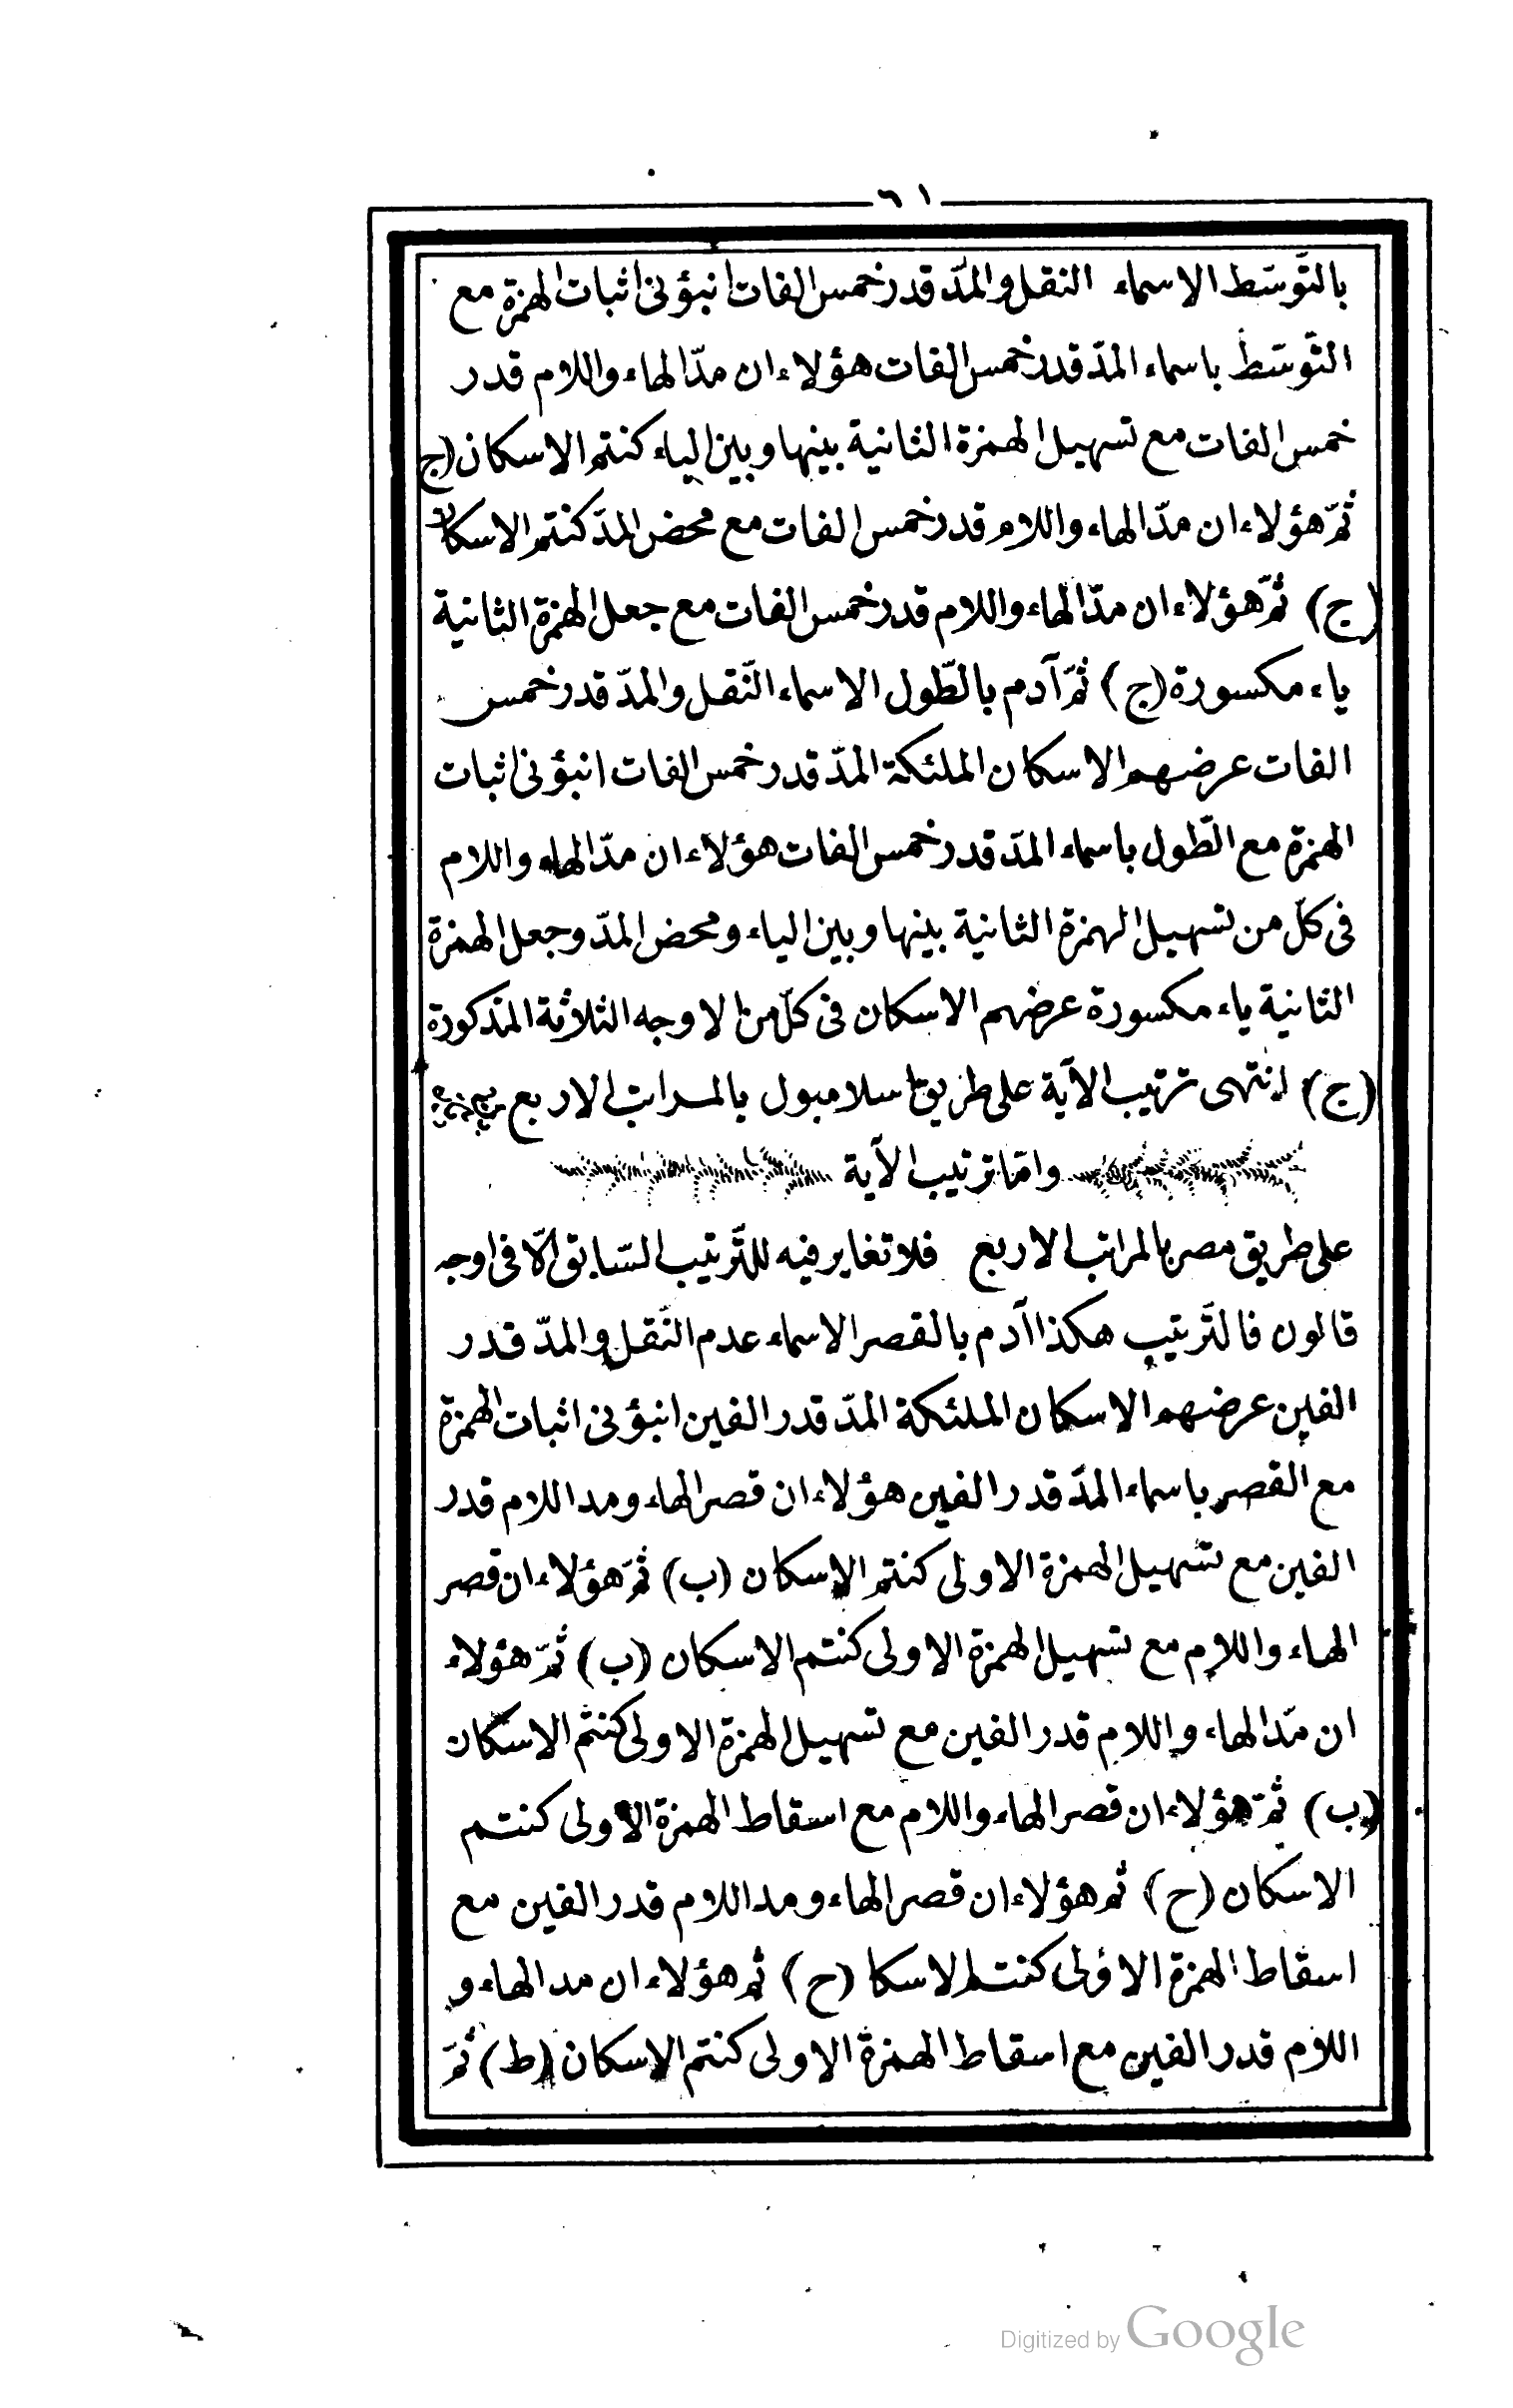 ٦١
بالتَّوسَط الاسماء النقل والمدّ قدر خمس الفات انبؤنى اثبات الهمزة مع
التّوسَط باسماء المدّ قدر خمس الفات هؤلاء ان مدّ الهاء واللام قدر
خمس الفات مع تسهيل الهمزة الثانية بينها وبين الياء كنتم الاسكان (ج
ثمّ هؤلاء ان مدّ الهاء واللام قدر خمس الفات مع محض المدّ كنتم الاسكان
(ج) ثمّ هؤلاء ان مدّ الهاء واللام قدر خمس الفات مع جعل الهمزة الثانية
ياء مكسورة (ج) ثمّ آدم بالطّول الاسماء النّقل والمدّ قدر خمس
الفات عرضهم الاسكان الملئكة المدّ قدر خمس الفات انبؤنى اثبات
الهمزة مع الطّول باسماء المدّ قدر خمس الفات هؤلاء ان مدّ الهاء واللام
فى كلّ من تسهيل الهمزة الثانية بينها وبين الياء ومحض المدّ وجعل الهمزة
الثانية ياء مكسورة عرضهم الاسكان فى كلّ من الاوجه الثلاثة المذكورة
(ج) انتهى ترتيب الآية على طريق اسلامبول بالمراتب الاربع
وامّا ترتيب الآية
على طريق مصر بالمراتب الاربع فلا تغاير فيه للتَّرتيب السّابق الّا فى اوجه
قالون فالتَّرتيب هكذا آدم بالقصر الاسماء عدم النَّقل والمدّ قدر
الفين عرضهم الاسكان الملئكة المدّ قدر الفين انبؤنى اثبات الهمزة
مع القصر باسماء المدّ قدر الفين هؤلاء ان قصر الهاء ومد اللام قدر
الفين مع تسهيل الهمزة الاولى كنتم الاسكان (ب) ثمّ هؤلاء ان قصر
الهاء واللام مع تسهيل الهمزة الاولى كنتم الاسكان (ب) ثمّ هؤلاء
ان مّد الهاء واللام قدر الفين مع تسهيل الهمزة الاولى كنتم الاسكان
(ب) ثمّ هؤلاء ان قصر الهاء واللام مع اسقاط الهمزة الاولى كنتم
الاسكان (ح) ثم هؤلاء ان قصر الهاء ومد اللام قدر الفين مع
اسقاط الهمزة الاولى كنتم الاسكا (ح) ثم هؤلاء ان مد الهاء و
اللام قدر الفين مع اسقاط الهمزة الاولى كنتم الاسكان (ط) ثمّ
Digitized by Google